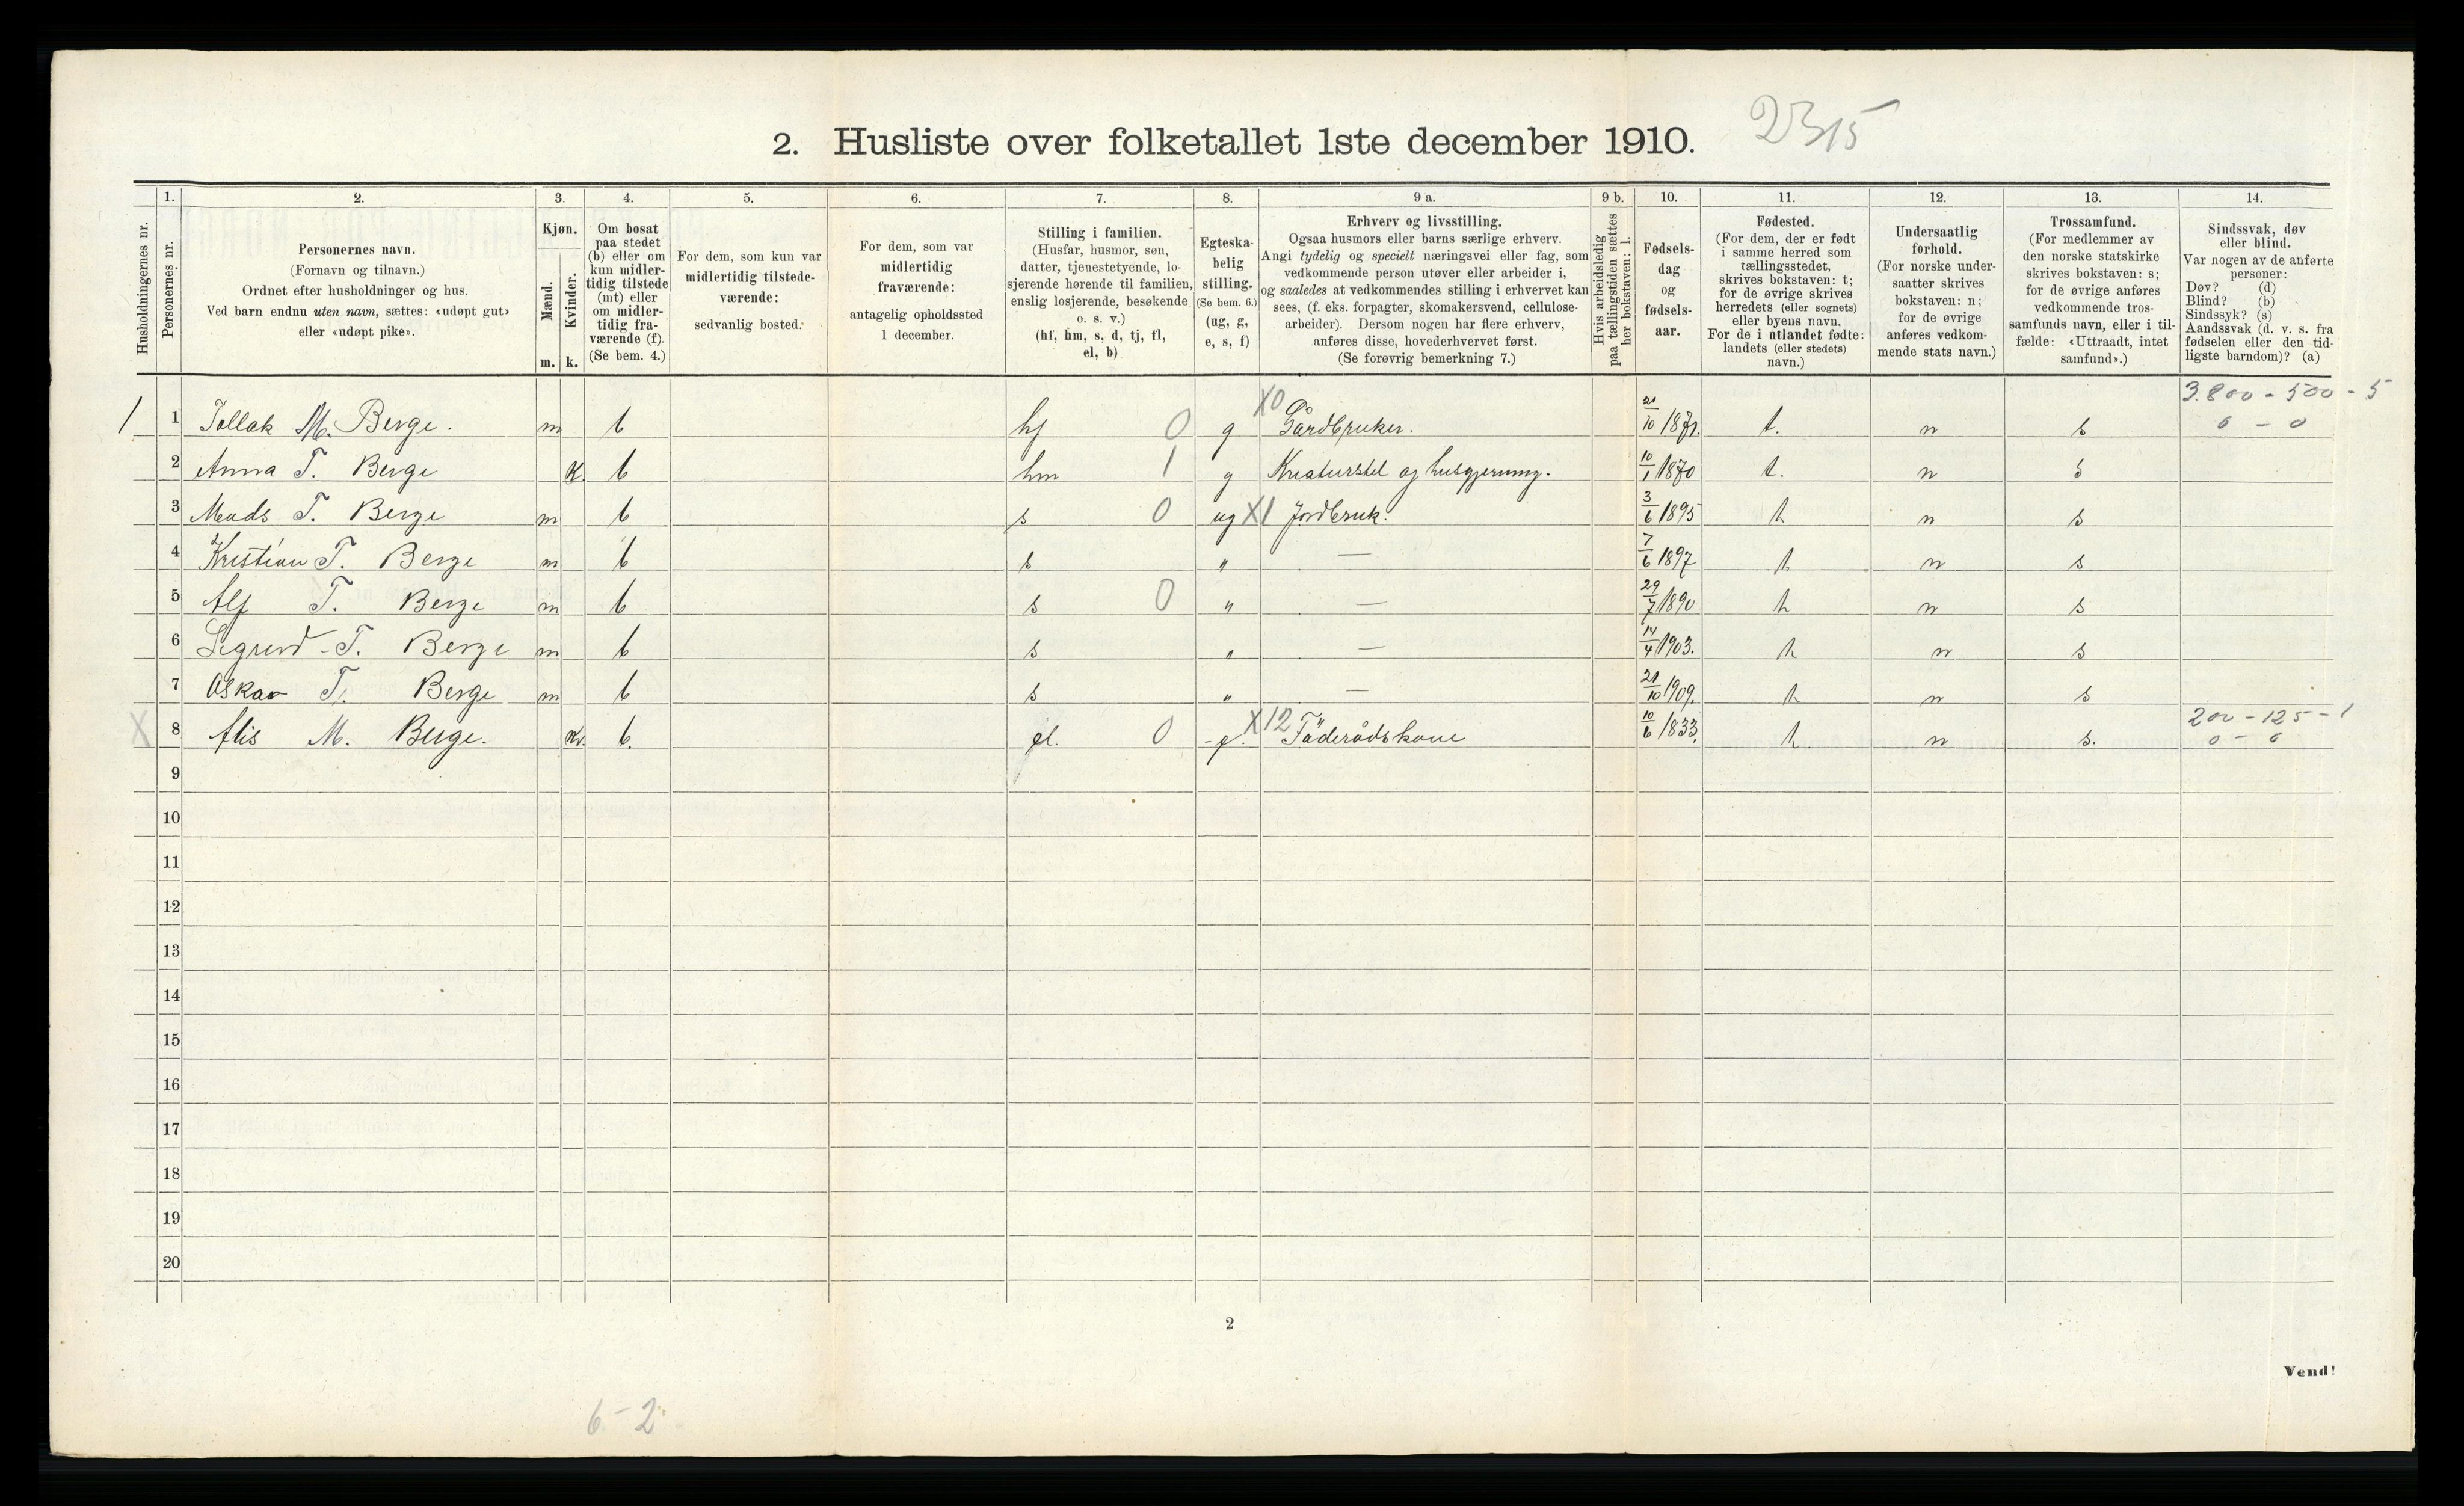 2315
2. Husliste over folketallet 1ste december 1910.
Husholdningernes nr.
1.
Personernes nr.
2.
Personernes navn.
(Fornavn og tilnavn.)
Ordnet efter husholdninger og hus.
Ved barn endnu uten navn, sættes: «udøpt gut»
eller «udøpt pike».
3.
Kjøn.
Mænd.
Kvinder.
m. k.
4.
Om bosat
paa stedet
(b) eller om
kun midler-
tidig tilstede
(mt) eller
om midler-
tidig fra-
værende (f).
(Se bem. 4.)
5.
For dem, som kun var
midlertidig tilstede-
værende:
sedvanlig bosted.
6.
For dem, som var
midlertidig
fraværende:
antagelig opholdssted
1 december.
7.
Stilling i familien.
(Husfar, husmor, søn,
datter, tjenestetyende, lo-
sjerende hørende til familien,
enslig losjerende, besøkende
o. s. v.)
(hf, hm, s, d, tj, fl,
el, b)
8.
Egteska-
belig
stilling.
(Se bem. 6.)
(ug, g,
e, s, f)
9 a.
Erhverv og livsstilling.
Ogsaa husmors eller barns særlige erhverv.
Angi tydelig og specielt næringsvei eller fag, som
vedkommende person utøver eller arbeider i,
og saaledes at vedkommendes stilling i erhvervet kan
sees, (f. eks. forpagter, skomakersvend, cellulose-
arbeider). Dersom nogen har flere erhverv,
anføres disse, hovederhvervet først.
(Se forøvrig bemerkning 7.)
9 b.
Hvis arbeidsledig
paa tællingstiden sættes
her bokstaven: l.
10.
Fødsels-
dag
og
fødsels-
aar.
11.
Fødested.
(For dem, der er født
i samme herred som
tællingsstedet,
skrives bokstaven: t;
for de øvrige skrives
herredets (eller sognets)
eller byens navn.
For de i utlandet fødte:
landets (eller stedets)
navn.)
12.
Undersaatlig
forhold.
(For norske under-
saatter skrives
bokstaven: n;
for de øvrige
anføres vedkom-
mende stats navn.)
13.
Trossamfund.
(For medlemmer av
den norske statskirke
skrives bokstaven: s;
for de øvrige anføres
vedkommende tros-
samfunds navn, eller i til-
fælde: «Uttraadt, intet
samfund».)
14.
Sindssvak, døv
eller blind.
Var nogen av de anførte
personer:
Døv? (d)
Blind? (b)
Sindssyk? (s)
Aandssvak (d. v. s. fra
fødselen eller den tid-
ligste barndom)? (a)
3.800 - 500 - 5
1 1 Tollak M. Berge. m b hf 0 g X0 Gårdbruker. 21/10 1871. t. n s 0 - 0
2 Anna T. Berge K. b hm 1 g Kreaturstel og husgjerning. 10/1 1870 t. n s
3 Mads T. Berge m b s 0 ug X1 Jordbruk. 3/6 1895 t n s
4 Kristian T. Berge m b s " — 7/6 1897 t n s
5 Alf T. Berge m b s 0 " — 29/7 1890 t n s
6 Sigurd T. Berge m b s " — 14/4 1903. t n s
7 Oskar T. Berge m b s " — 21/10 1909. t n s
200 - 125 - 1
X 8 Alis M. Berge. K. b. fl. 0 X12 Föderådskone 10/6 1833. t. n s. 0 - 0
9
10
11
12
13
14
15
16
17
18
19
20
2
Vend!
6 - 2